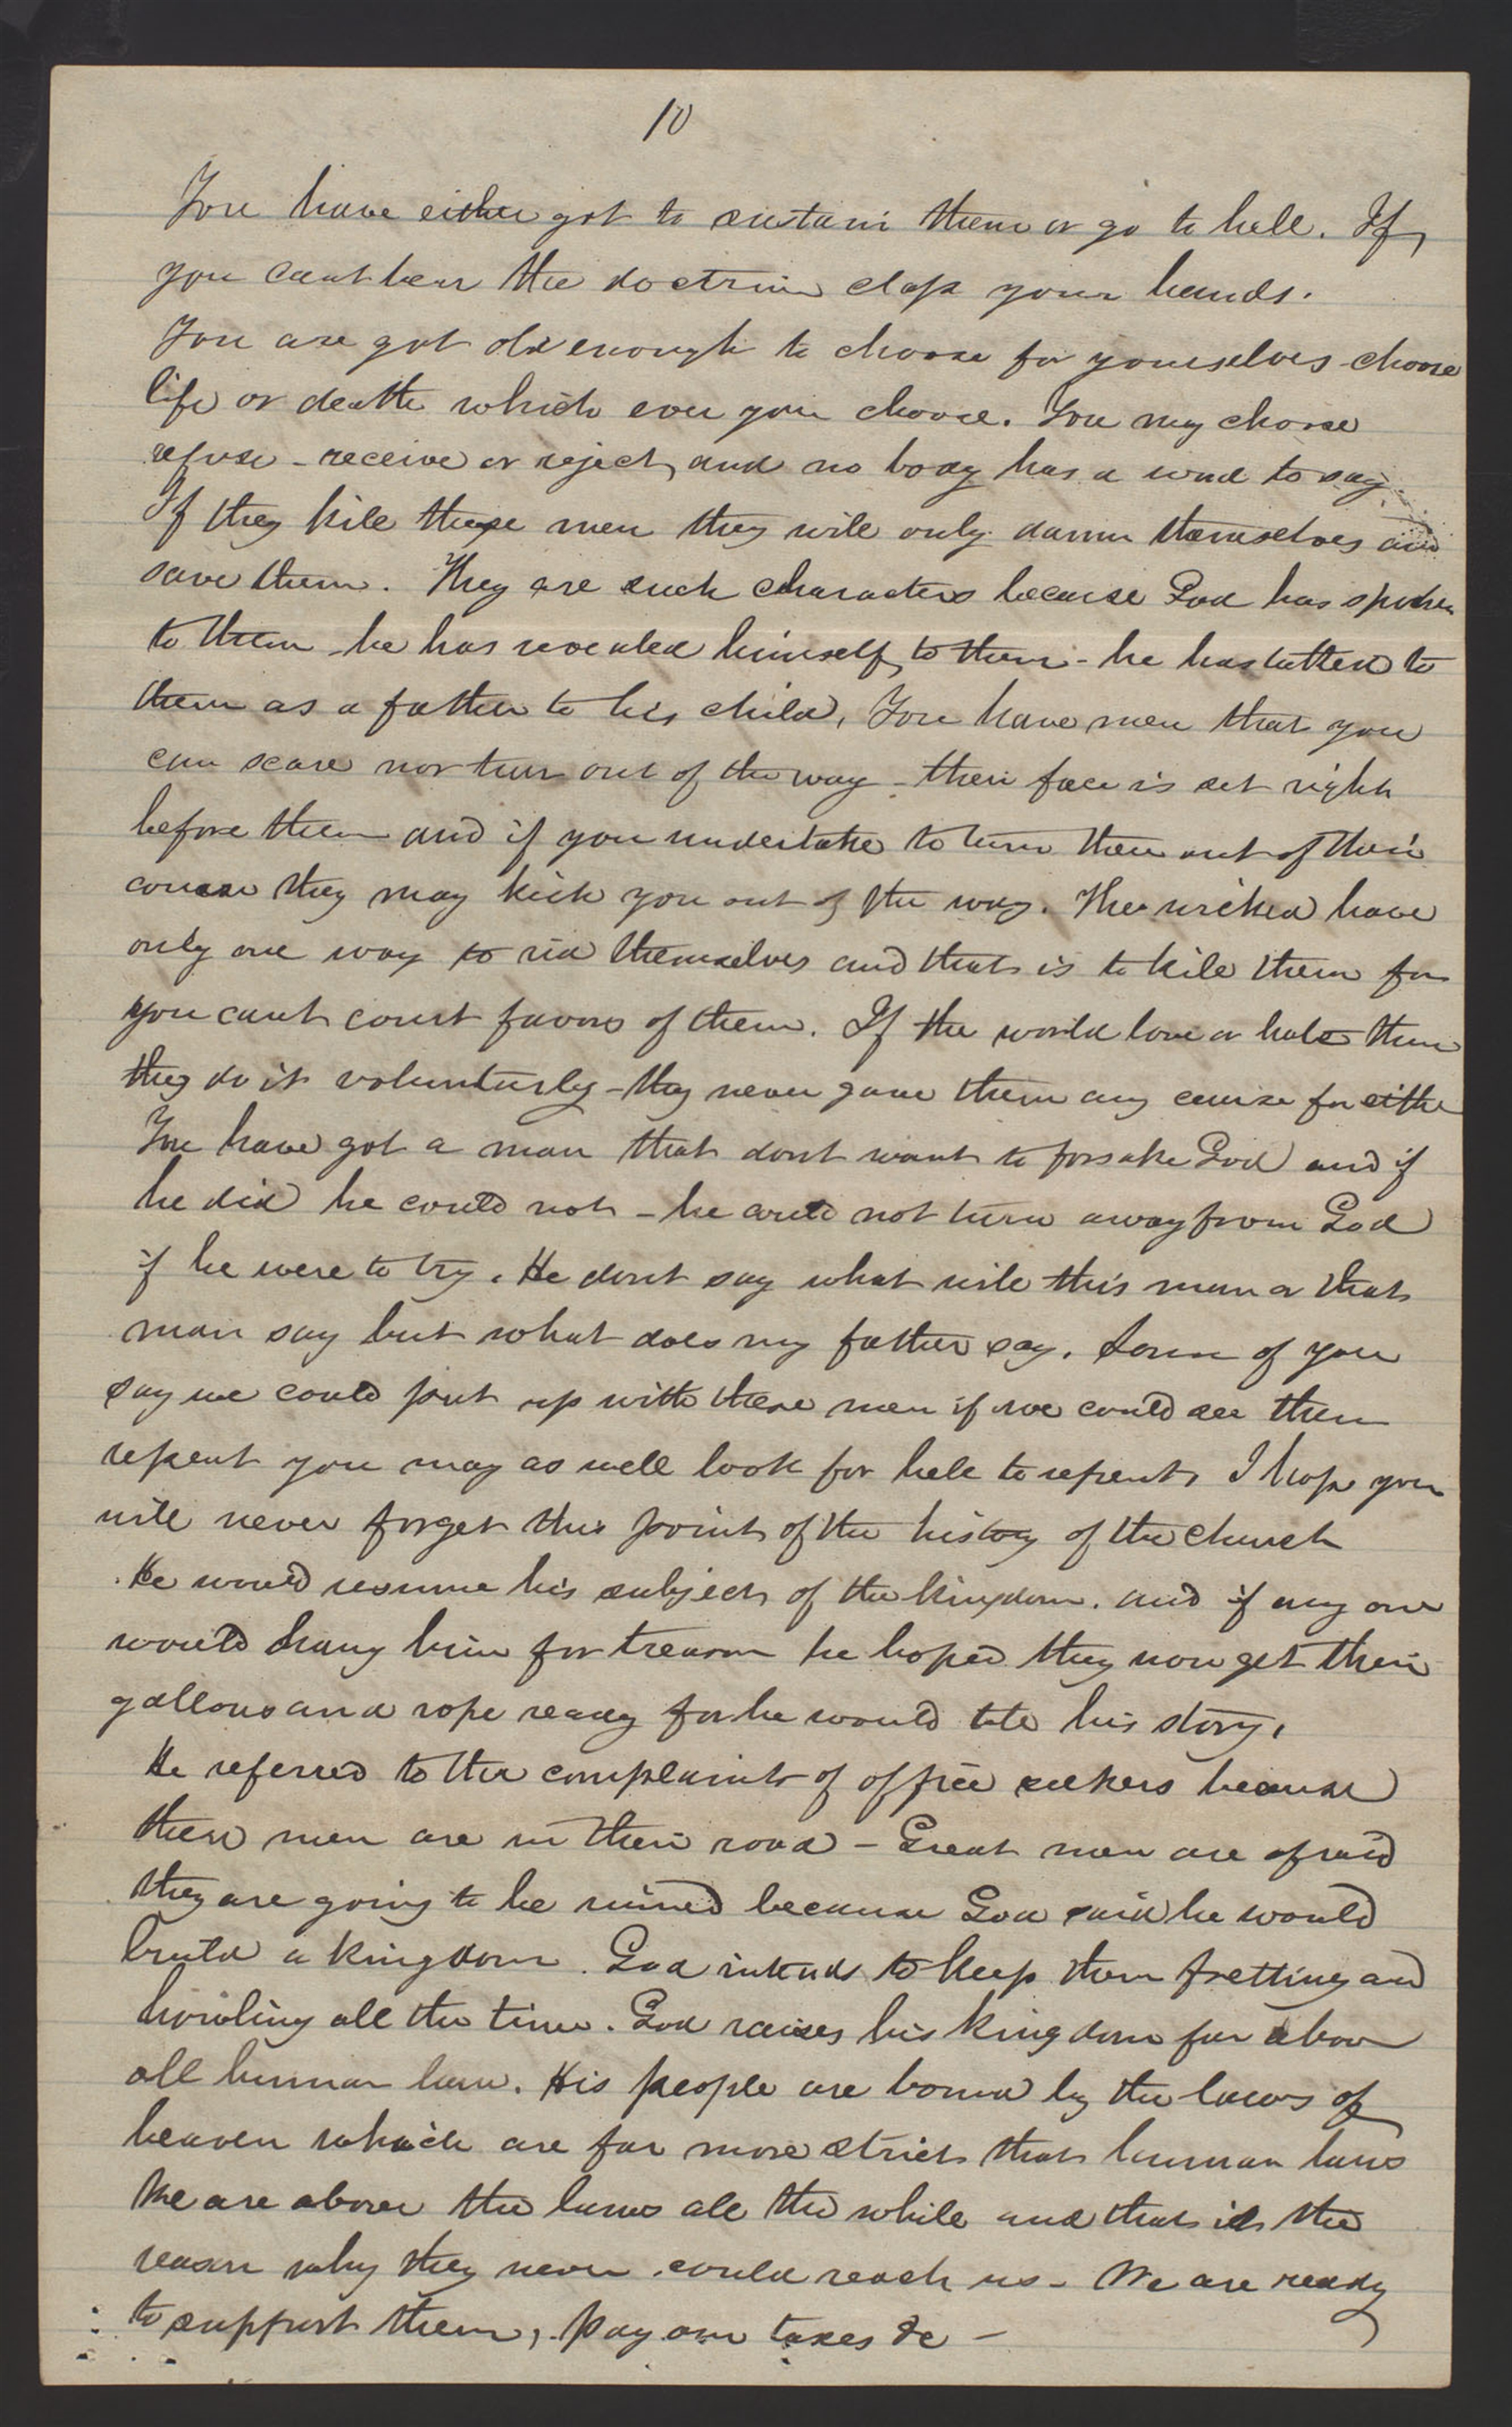 10
You have either got to sustain them or go to hell. If
you cant bear the doctrine clap your hands.
You are got old enough to choose for yourselves - choose
life or death which ever you choose. You my choose
refuse - receive or reject, and no body has a word to say.
If they kill these men they will only damn themselves and
save them. They are such characters because God has spoken
to them - he has revealed himself to them - he has talked to
them as a father to his child, You have men that you
can scare nor turn out of the way - their face is set right
before them and if you undertake to turn them out of their
course they may kick you out of the way. The wicked have
only one way to rid themselves and that is to kill them for
you cant court favors of them. If the world love or hate them
they do it voluntarly - they never gave them any cause for either
You have got a man that dont want to forsake God and if
he did he could not - he could not turn away from God
if he were to try. He dont say what will this man or that
man say but what does my father say. Some of you
say we could put up with these men if we could see them
repent you may as well look for hell to repent, I hope you
will never forget this point of the history of the church
He would resume his subject of the kingdom. and if any one
would hang him for treason he hoped they now get their
gallous and rope ready for he would tell his story,
He referred to the complaints of office seekers because
these men are in their road - Great men are afraid
they are going to be ruined because God said he would
build a kingdom. God intends to keep them fretting and
howling all the time. God raises his kingdom far above
all human law. His people are bound by the laws of
heaven which are far more strict than human laws
We are above the laws all the while and that is the
reason why they never could reach us - We are ready
to support them, pay our taxes &c -